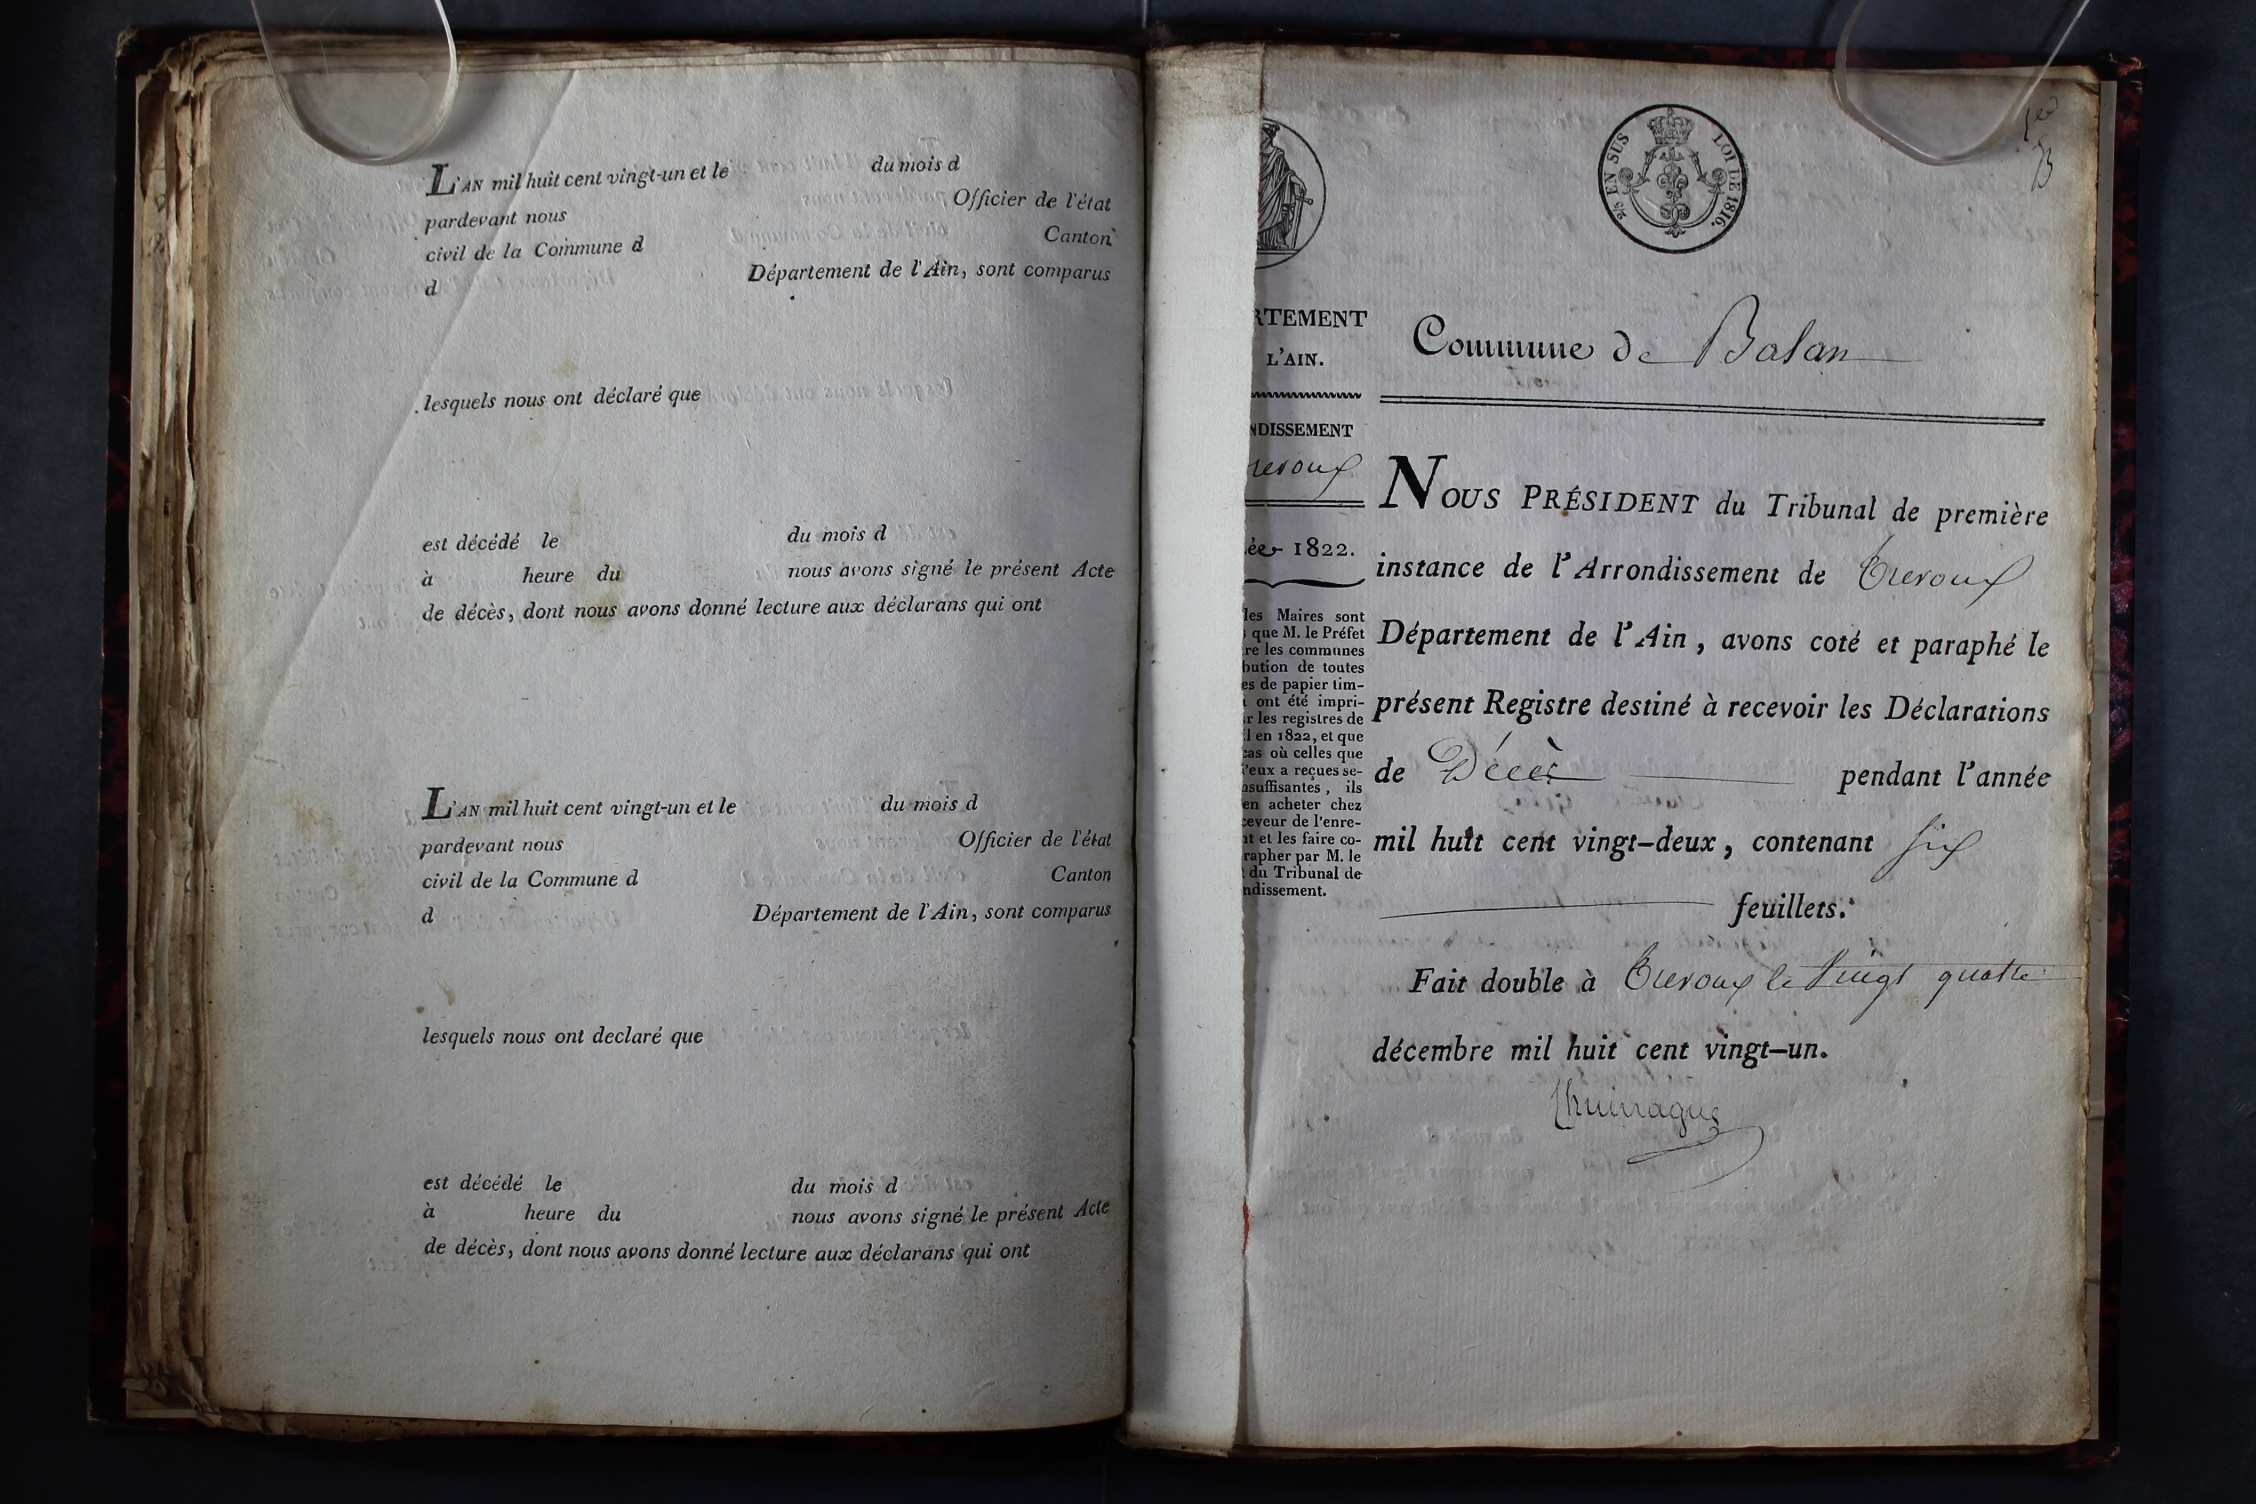 L'AN mil huit cent vingt-un et le du mois d
pardevant nous Officier de l'état
civil de la Commune d Canton
d Département de l'Ain, sont comparus
lesquels nous ont déclaré que
est décédé le du mois d
à heure du nous avons signé le présent Acte
de décès, dont nous avons donné lecture aux déclarans qui ont
L'AN mil huit cent vingt-un et le du mois d
pardevant nous Officier de l'état
civil de la Commune d Canton
d Département de l'Ain, sont comparus
lesquels nous ont declaré que
est décédé le du mois d
à heure du nous avons signé le présent Acte
de décès, dont nous avons donné lecture aux déclarans qui ont
2/5 EN SUS LOI DE 1816.
RTEMENT
L'AIN.
NDISSEMENT
revoux
ée 1822.
les Maires sont
que M. le Préfet
re les communes
bution de toutes
es de papier tim-
ont été impri-
r les registres de
l en 1822, et que
cas où celles que
d'eux a reçues se-
nsuffisantes, ils
en acheter chez
ceveur de l'enre-
nt et les faire co-
rapher par M. le
du Tribunal de
ndissement.
1er
Commune de Balan
NOUS PRÉSIDENT du Tribunal de première
instance de l'Arrondissement de Trevoux
Département de l'Ain, avons coté et paraphé le
présent Registre destiné à recevoir les Déclarations
de Décès pendant l'année
mil huit cent vingt-deux, contenant six
feuillets.
Fait double à Trevoux le vingt quatre
décembre mil huit cent vingt-un.